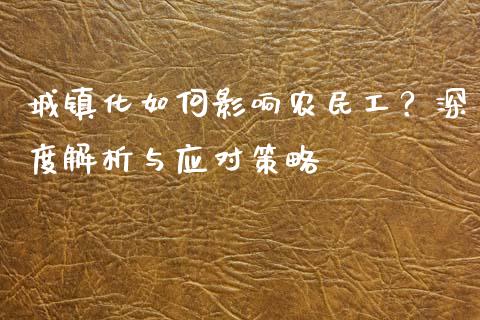 城镇化如何影响农民工？深
度解析与应对策略